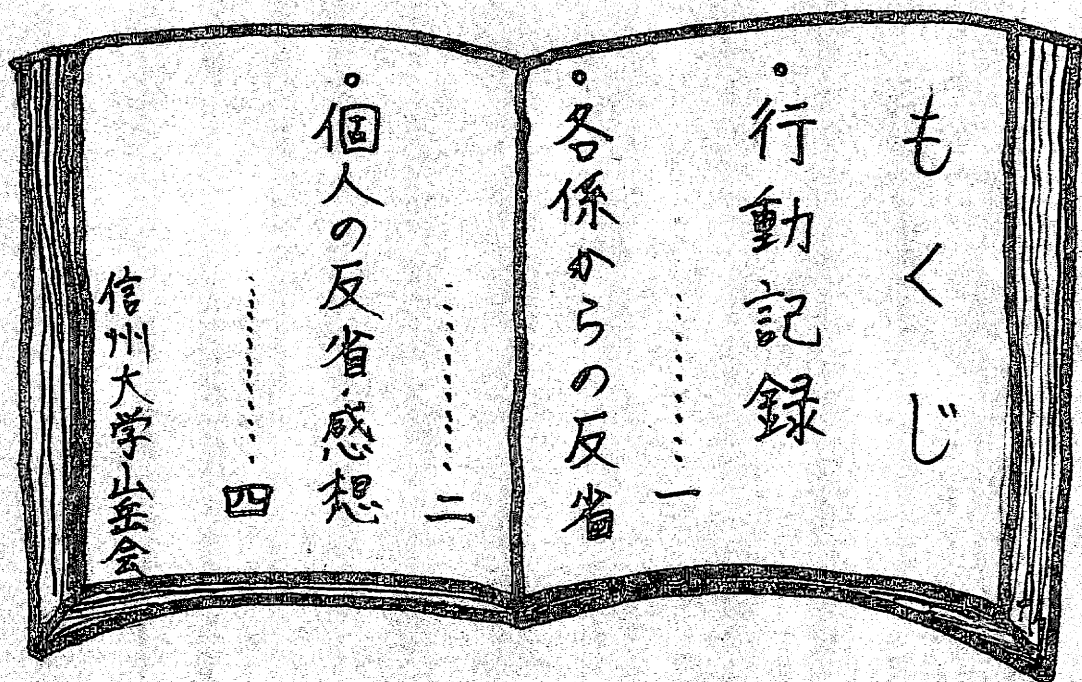 もくじ
・行動記録
……… 一
・各係からの反省
……… 二
・個人の反省・感想
……… 四
信州大学山岳会